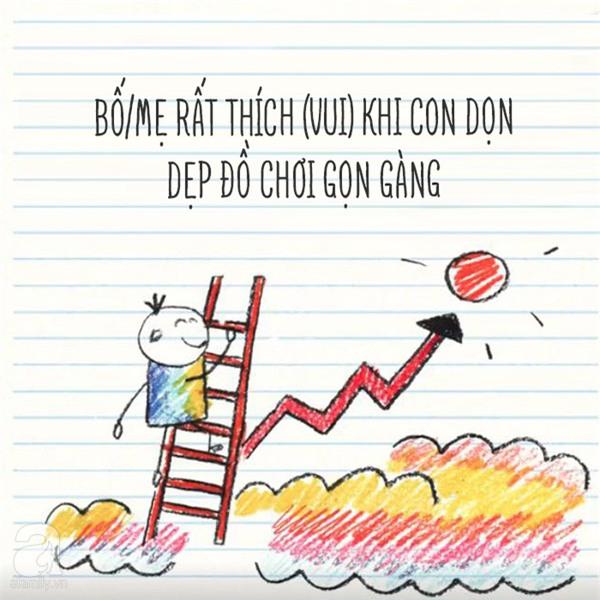 BỐ/MẸ RẤT THÍCH (VUI) KHI CON DỌN
DẸP ĐỒ CHƠI GỌN GÀNG
afamily.vn